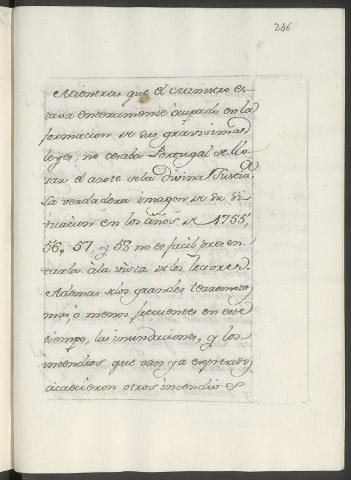 246
Mientras que el ministro es
tava enteramente ocupado en la
formacion de sus gravisimas
leyes, no cesaba Portugal de llo
rar el azote de la Divina Justicia.
La verdadera imagen de su si
tuacion en los años de 1755,
56, 57, y 58 no es facil presen
tarla à la vista de los lectores.
Ademas de los grandes terremotos
mas, o menos frecuentes en este
tiempo, las inundaciones, y los
incendios que van ya expresados,
acaecieron otros incendios